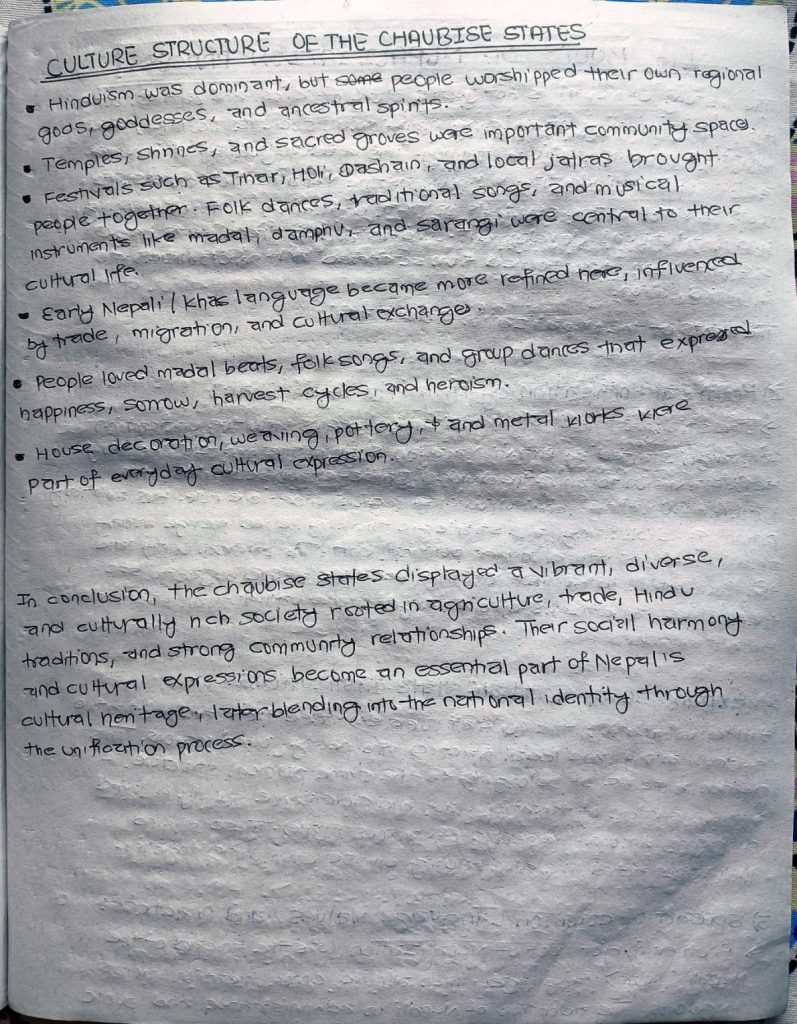 CULTURE STRUCTURE OF THE CHAUBISE STATES
• Hinduism was dominant, but some people worshipped their own regional
gods, goddesses, and ancestral spirits.
• Temples, shrines, and sacred groves were important community space.
• Festivals such as Tihar, Holi, Dashain, and local jatras brought
people together. Folk dances, traditional songs, and musical
instruments like madal, damphu, and sarangi were central to their
cultural life.
• Early Nepali / khas language became more refined here, influenced
by trade, migration, and cultural exchange.
• People loved madal beats, folk songs, and group dances that expressed
happiness, sorrow, harvest cycles, and heroism.
• House decoration, weaving, pottery, and metal works were
part of everyday cultural expression.
In conclusion, the chaubise states displayed a vibrant, diverse,
and culturally rich society rooted in agriculture, trade, Hindu
traditions, and strong community relationships. Their social harmony
and cultural expressions become an essential part of Nepal's
cultural heritage, later blending into the national identity through
the unification process.